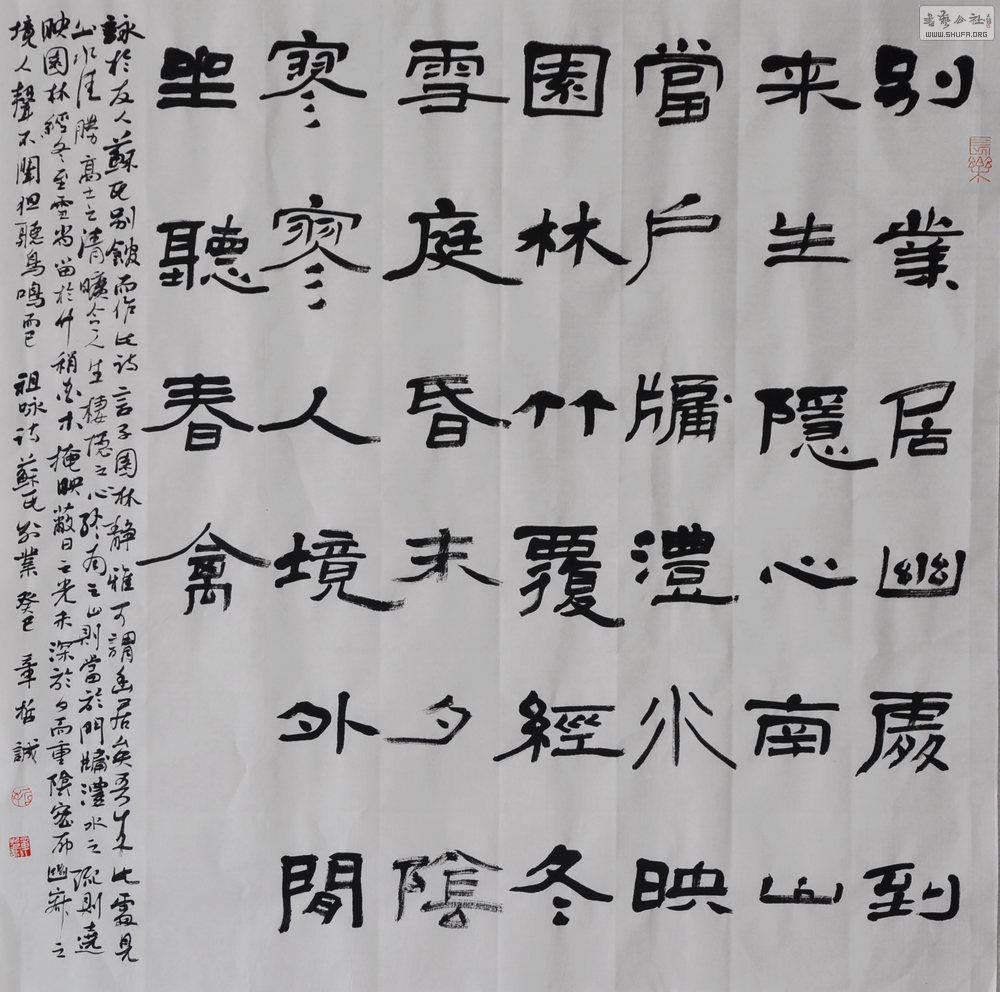 別業居幽處到
来生隱心南山
當戶牖灃水映
園林竹覆經冬
雪庭昏未夕陰
寥寥人境外閒
坐聽春禽
詠於友人蘇氏別館而作此詩言子園林靜雅可謂幽居矣吾來此處見
山水佳勝高士之清曠令人生棲隱之心終南之山則當於門牖灃水之流則遶
映園林經冬至雪尚留於竹稍嘉木掩映蔽日之光未深於夕而重陰密布幽寂之
境人聲不聞但聽鳥鳴而已 祖咏詩蘇氏別業 癸巳 章哲誠
長樂
書藝公社
WWW.SHUFA.ORG